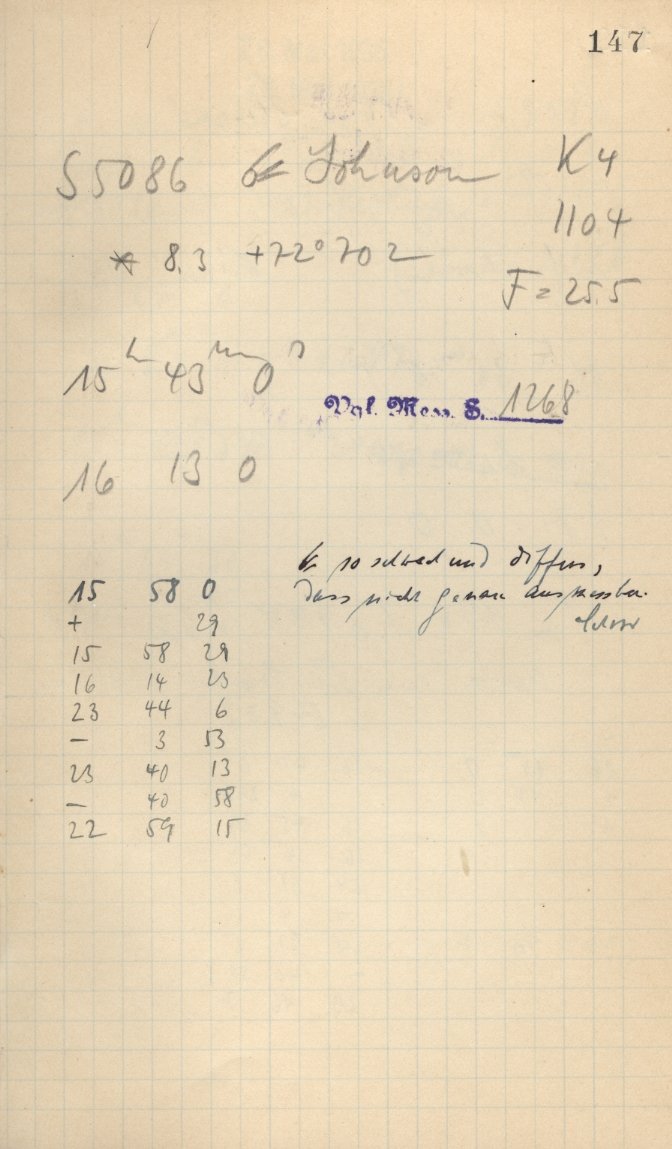 147
S5086 ☄ Johnson K4
1104
* 8.3 +72°702
F = 25.5
15ʰ 43ᵐ 0ˢ
Vgl. Mess. S. 1268
16 13 0
☄ so schwach und diffus,
dass nicht genau auszumessen.
15 58 0
+ 29
15 58 29
16 14 23
23 44 6
— 3 53
23 40 13
— 40 58
22 59 15